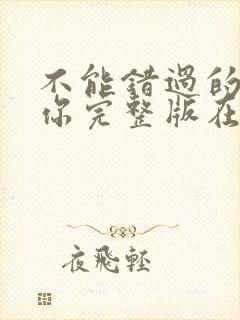 不能错过的
你完整版在
夜飛輕